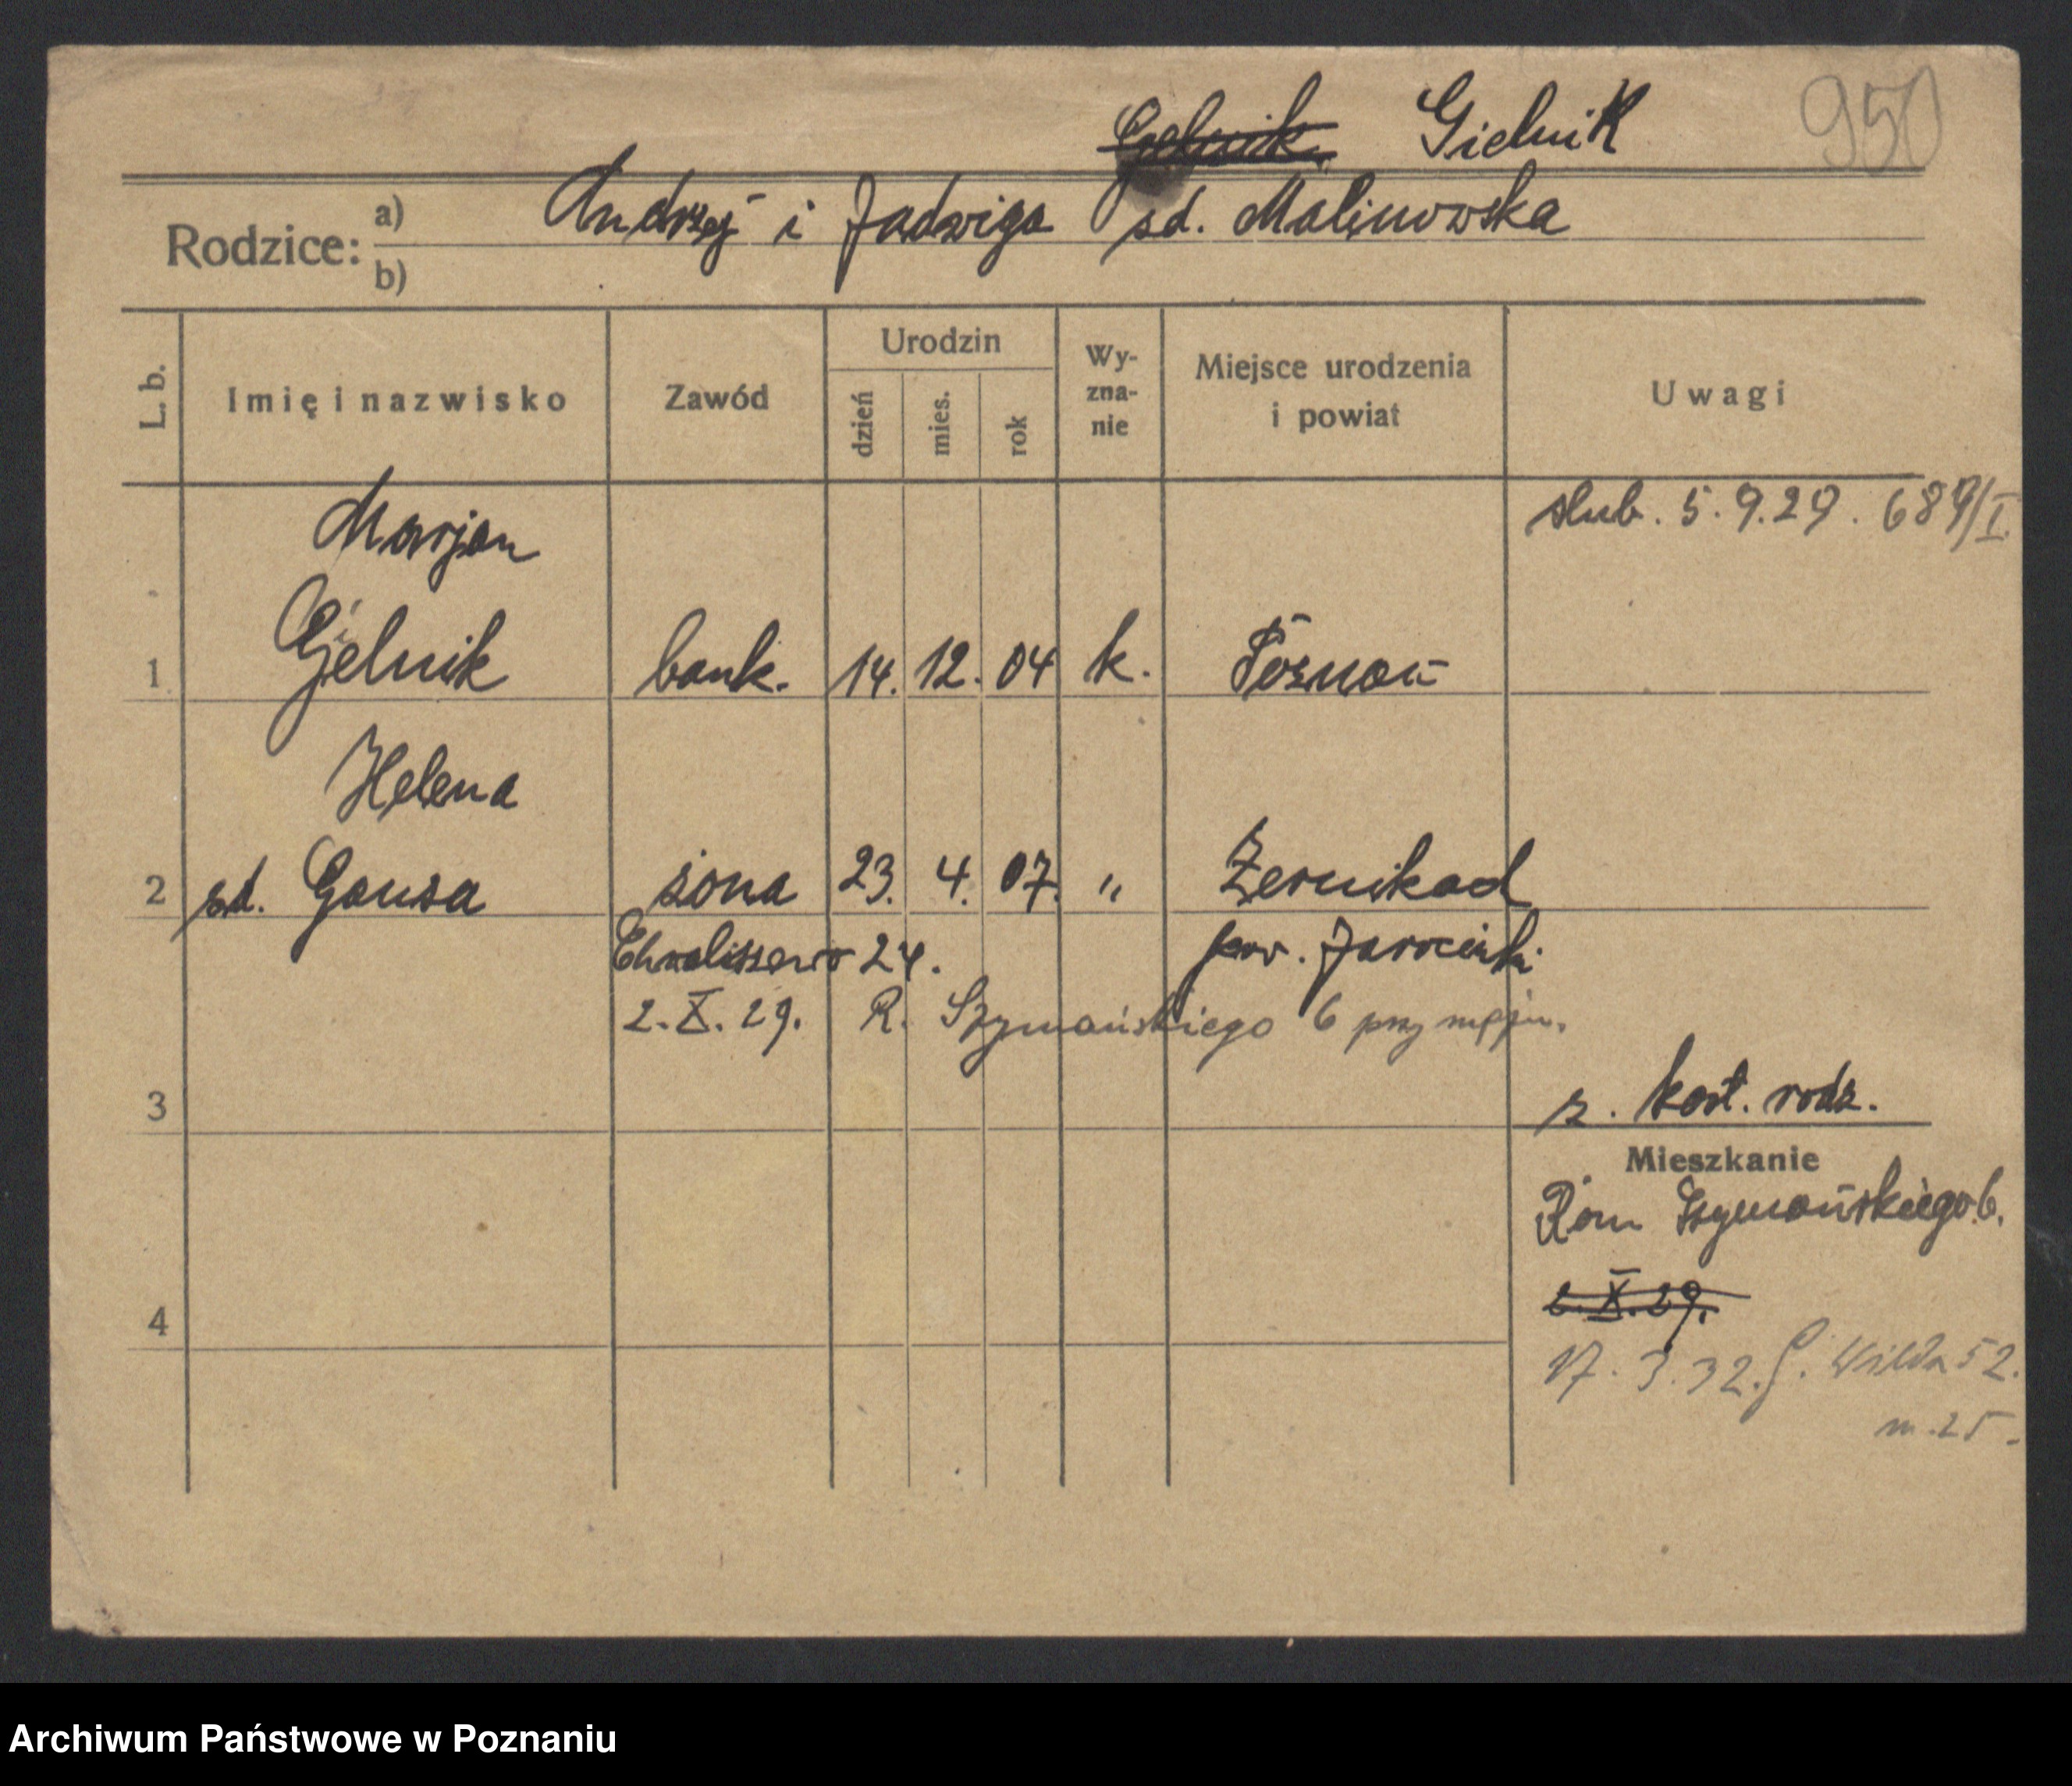 Gielnik Gielnik 950
Rodzice: a) Andrzej i Jadwiga zd. Malinowska
b)
L. b. Imię i nazwisko Zawód Urodzin dzień mies. rok Wy-zna-nie Miejsce urodzenia i powiat Uwagi
ślub. 5.9.29. 689/I
Marjan
1 Gielnik bank. 14. 12. 04 k. Poznań
Helena
2 zd. Gansa żona 23. 4. 07. "
Chwaliszewo 24. pow. Jarociński
2.X.29. R. Szymańskiego 6 przy
3 z. kart. rodz.
Mieszkanie
Rom Szymańskiego 6.
2.X.29.
4
17.3.32. G. Wilda 52.
m. 25.
Archiwum Państwowe w Poznaniu